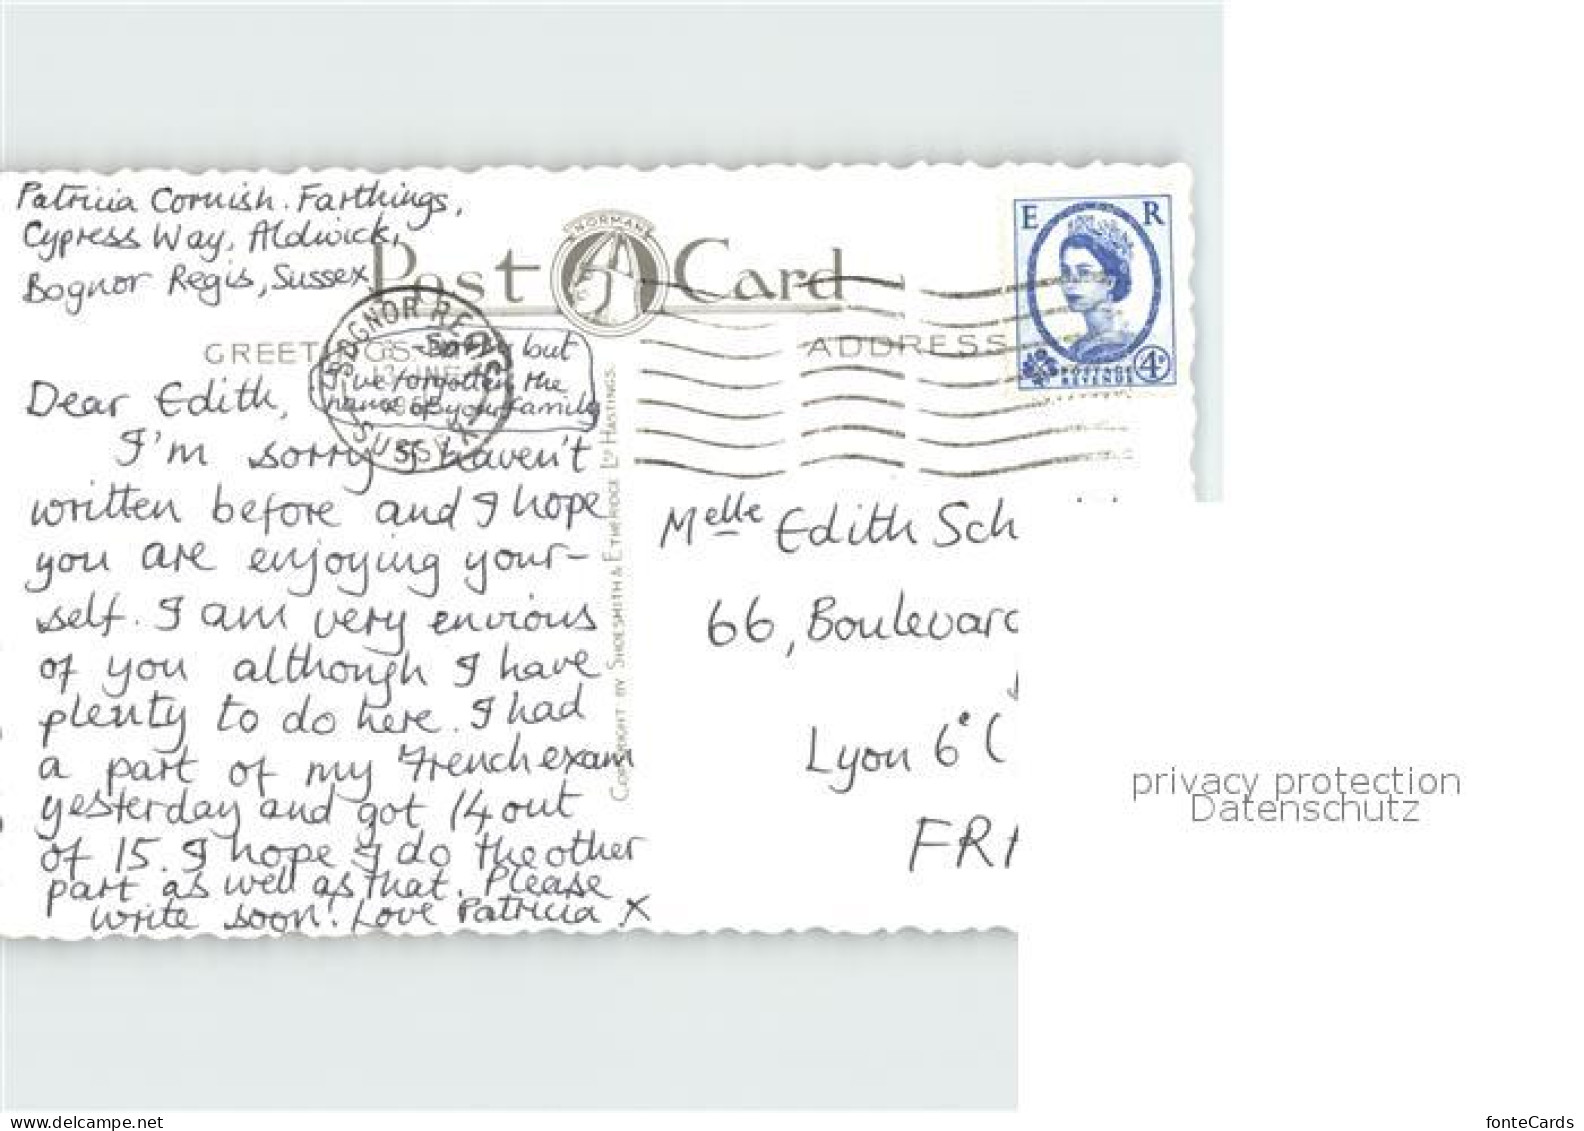 Patricia Cornish. Farthings,
Cypress Way, Aldwick,
Bognor Regis, Sussex
NORMAN
Post Card
E R
POSTAGE
REVENUE
4D
BOGNOR REGIS
SUSSEX
GREETINGS
ADDRESS
Sorry but
I've forgotten the
name of your family
Dear Edith,
I'm sorry I haven't
written before and I hope
you are enjoying your-
self. I am very envious
of you although I have
plenty to do here. I had
a part of my French exam
yesterday and got 14 out
of 15. I hope I do the other
part as well as that. Please
write soon. Love Patricia X
COPYRIGHT BY SHOESMITH & ETHERIDGE LD HASTINGS.
Melle Edith Sch
66, Boulevard
Lyon 6e (
FRA
privacy protection
Datenschutz
www.delcampe.net
fonteCards